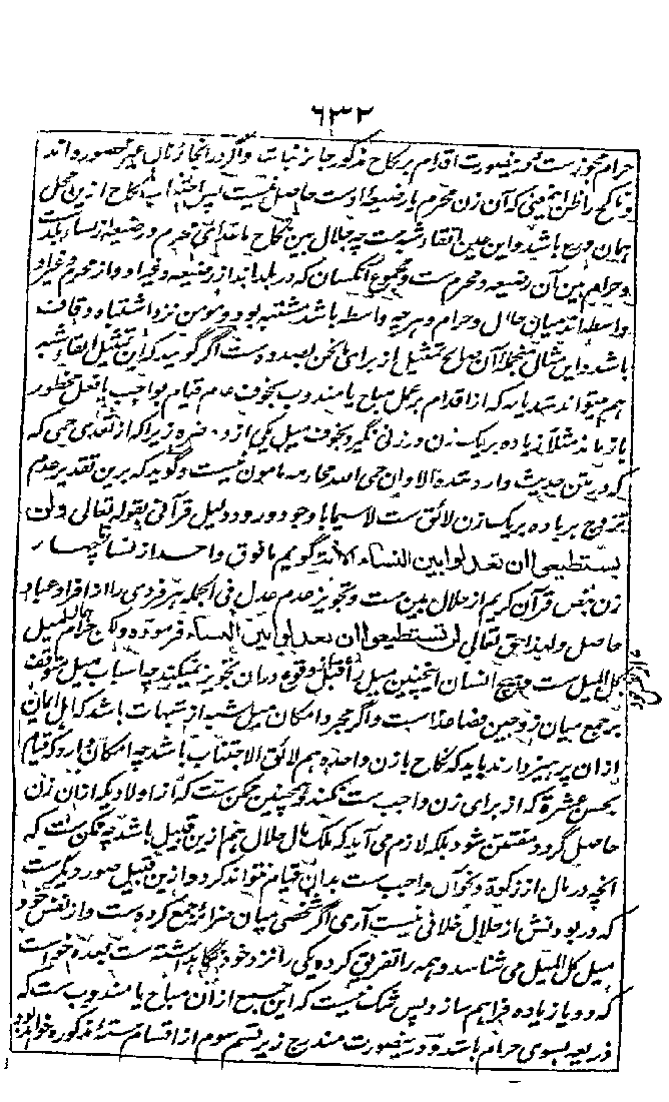 ۶۳۲
حرام مجوز ست و درینصورت اقدام بر نکاح مذکور جائز نباشد و اگر در انجا زنان غیر محصوره اند
و ناکح را ظن این معنی که آن زن محرم یا رضیعهٔ اوست حاصل نیست پس اجتناب نکاح ازین محل
همان ورع باشد و این عین اتقاء شبه است چه حلال بین نکاح با
و حرام بین آن رضیعه و محرم ست و مجموع آنکسان که در بلد اند از رضیعه و غیر او و از محرم و غیر او
واسطه اند میان حلال و حرام و هر چه واسطه باشد مشتبه بود و مومن نزد اشتباه وقاف
باشد و این مثال منجملهٔ آن صالح تمثیل از برای مانحن بصدده است اگر گوئید که این تمثیل اتقاء شبه
هم میتواند شد یا نه که از اقدام بر عمل مباح یا مندوب بخوف عدم قیام بواجب یا فعل محظور
باز ماند مثلاً زیاده بر یک زن در زنی نگیرد بخوف میل یکی از دو ضره زیرا که از تعدی حمی که
که در متن حدیث وارد شده الا وان حمی الله محارمه مامون نیست و گوید که برین تقدیر عدم
تزوج بر یاده بر یک زن لائق ست لاسیما با وجود ورود دلیل قرآنی بقوله تعالی ولن
تستطیعوا ان تعدلوا بین النساء الآیة گویم مافوق واحد از نساء تا چهار
زن بنص قرآن کریم از حلال بین ست و تجویز عدم عدل فی الجمله هر فردی را از افراد عباد
حاصل و لهذا حق تعالی لن تستطیعوا ان تعدلوا بین النساء فرموده و لکن حرام المیل
کل المیل ست و هیچ انسان اینچنین میل را قبل وقوع در آن تجویز نمیکند چه اسباب میل متوقف
بر جمع میان زوجین فصاعدا ست و اگر مجرد امکان میل شبه از شبهات باشد که اهل ایمان
ازان پرهیز دارند باید که نکاح با زن واحده هم لائق الاجتناب باشد چه امکان دارد که قیام
بحسن عشرة که از برای زن واجب ست نکند و همچنین ممکن ست که از اولادیکه از آن زن
حاصل گردد مفتتن شود بلکه لازم می آید که ملک مال حلال هم ازین قبیل باشد چه ممکن ست که
انچه در مال از زکوة و نحو آن واجب ست بدان قیام نتواند کرد و ازین قبیل صور دیگرست
که در بودنش از حلال خلافی نیست آری اگر شخصی میان ضرائر جمع کرده است و از نفس خود
میل کل المیل می شناسد و همه را تفریق کرده و یکی را نزد خود نگاهداشته ست بعده خواست
که دو یا زیاده فراهم سازد پس شک نیست که این جمع ازان مباح یا مندوب ست که
ذریعه بسوی حرام باشد و درینصورت مندرج زیر قسم سوم از اقسام ستهٔ مذکوره خواهد بود